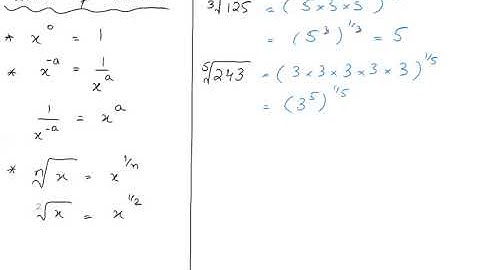 * x⁰ = 1
* x⁻ᵃ = 1/xᵃ
1/x⁻ᵃ = xᵃ
* ⁿ√x = x^(1/n)
²√x = x^(1/2)
³√125 = (5×5×5)^(1/3)
= (5³)^(1/3) = 5
⁵√243 = (3×3×3×3×3)^(1/5)
= (3⁵)^(1/5)